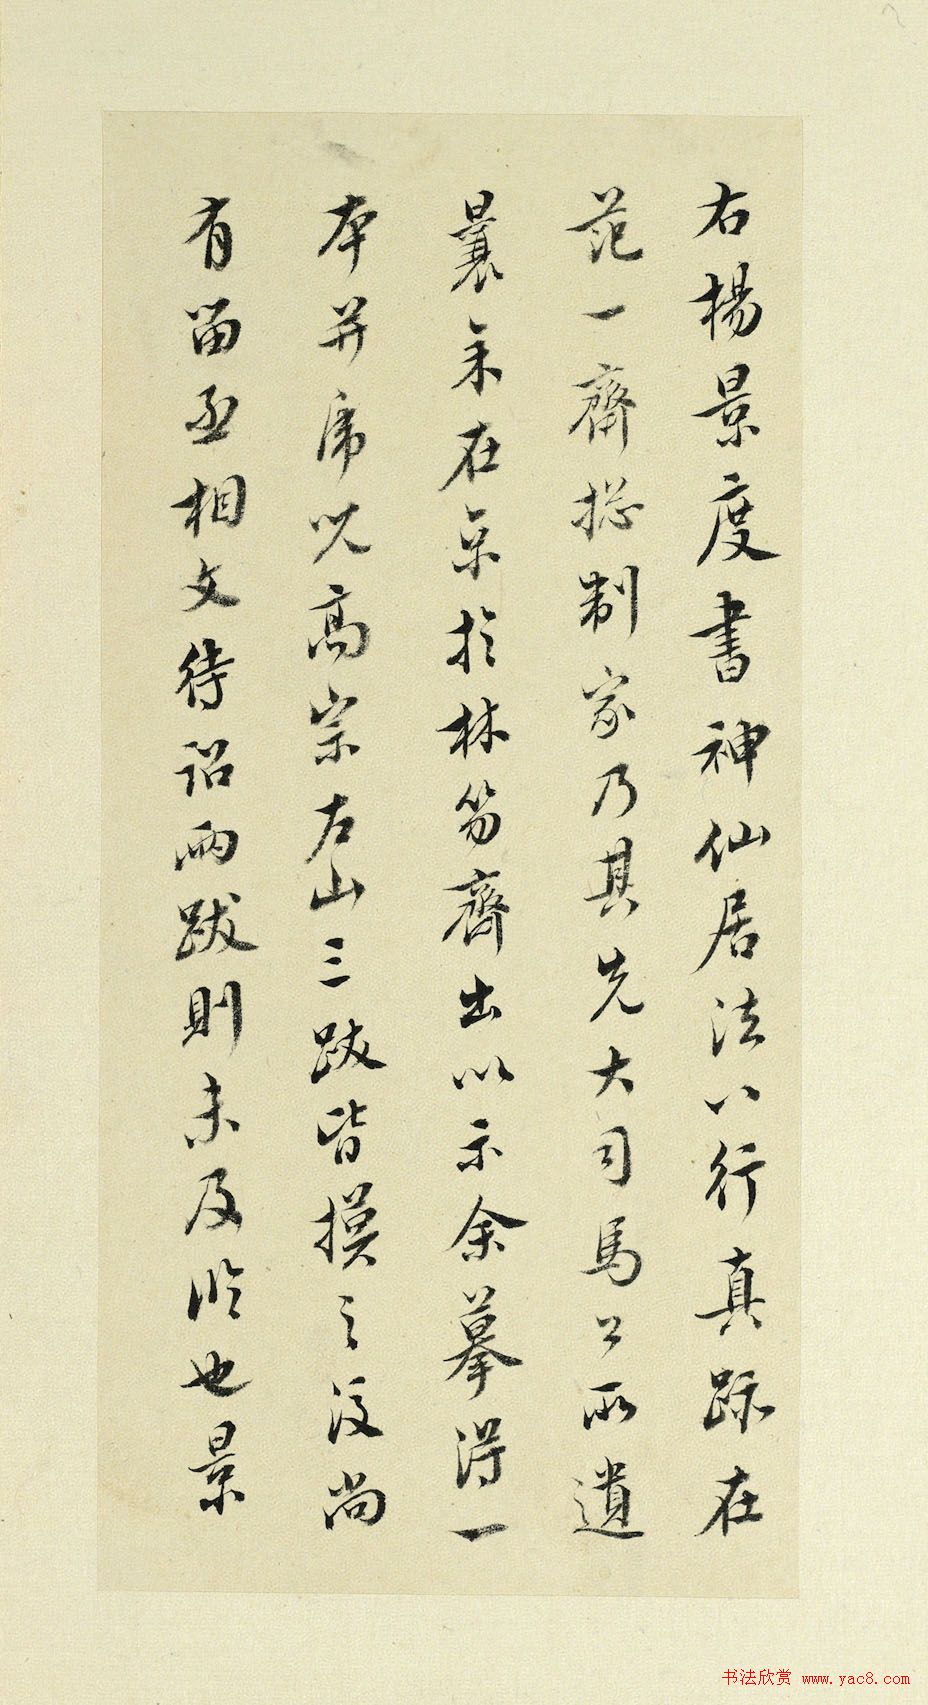 右楊景度書神仙居法八行真跡在
范一齋捴制家乃其先大司馬公所遺
曩来在京於林笏齋出以示余摹得一
本并虎児高宗左山三跋皆摸之後尚
有留丞相文待詔兩跋則未及臨也景
书法欣赏 www.yac8.com